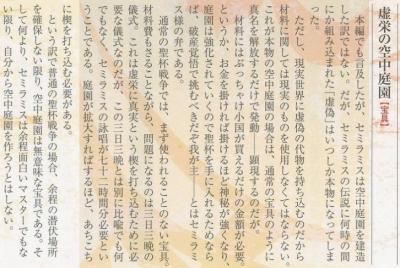 虚栄の空中庭園【宝具】
本編でも言及したが、セミラミスは空中庭園を建造
した訳ではない。だが、セミラミスの伝説に何時の間
にか組み込まれた「虚偽」はいつしか本物になってしま
った。
ただし、現実世界に虚偽の代物を持ち込むのだから
材料に関しては現実のものを使用しなくてはならない。
これが本物の空中庭園の場合は、通常の宝具のように
真名を解放するだけで発動――顕現するのだが。
材料にはぶっちゃけ小国が買えるだけの金額が必要。
というか、お金を掛ければ掛けるほど神秘が強くなり、
庭園は強化されていくので聖杯を手に入れるためなら
ば、破産覚悟で挑むべきだぞ我が主……とはセミラミ
ス様の弁である。
通常の聖杯戦争では、まず使われることのない宝具。
材料費もさることながら、問題になるのは三日三晩の
儀式。これは虚栄に真実という楔を打ち込むために必
要な儀式なのだが、この三日三晩とは別に比喩でも何
でもなく、セミラミスの詠唱が七十二時間分必要とい
うことである。庭園が拡大すればするほど、あちこち
に楔を打ち込む必要がある。
という訳で普通の聖杯戦争の場合、余程の潜伏場所
を確保しない限り、空中庭園は無意味な宝具である。そ
して何より、セミラミスは余程面白いマスターでもな
い限り、自分から空中庭園を作ろうとはしない。